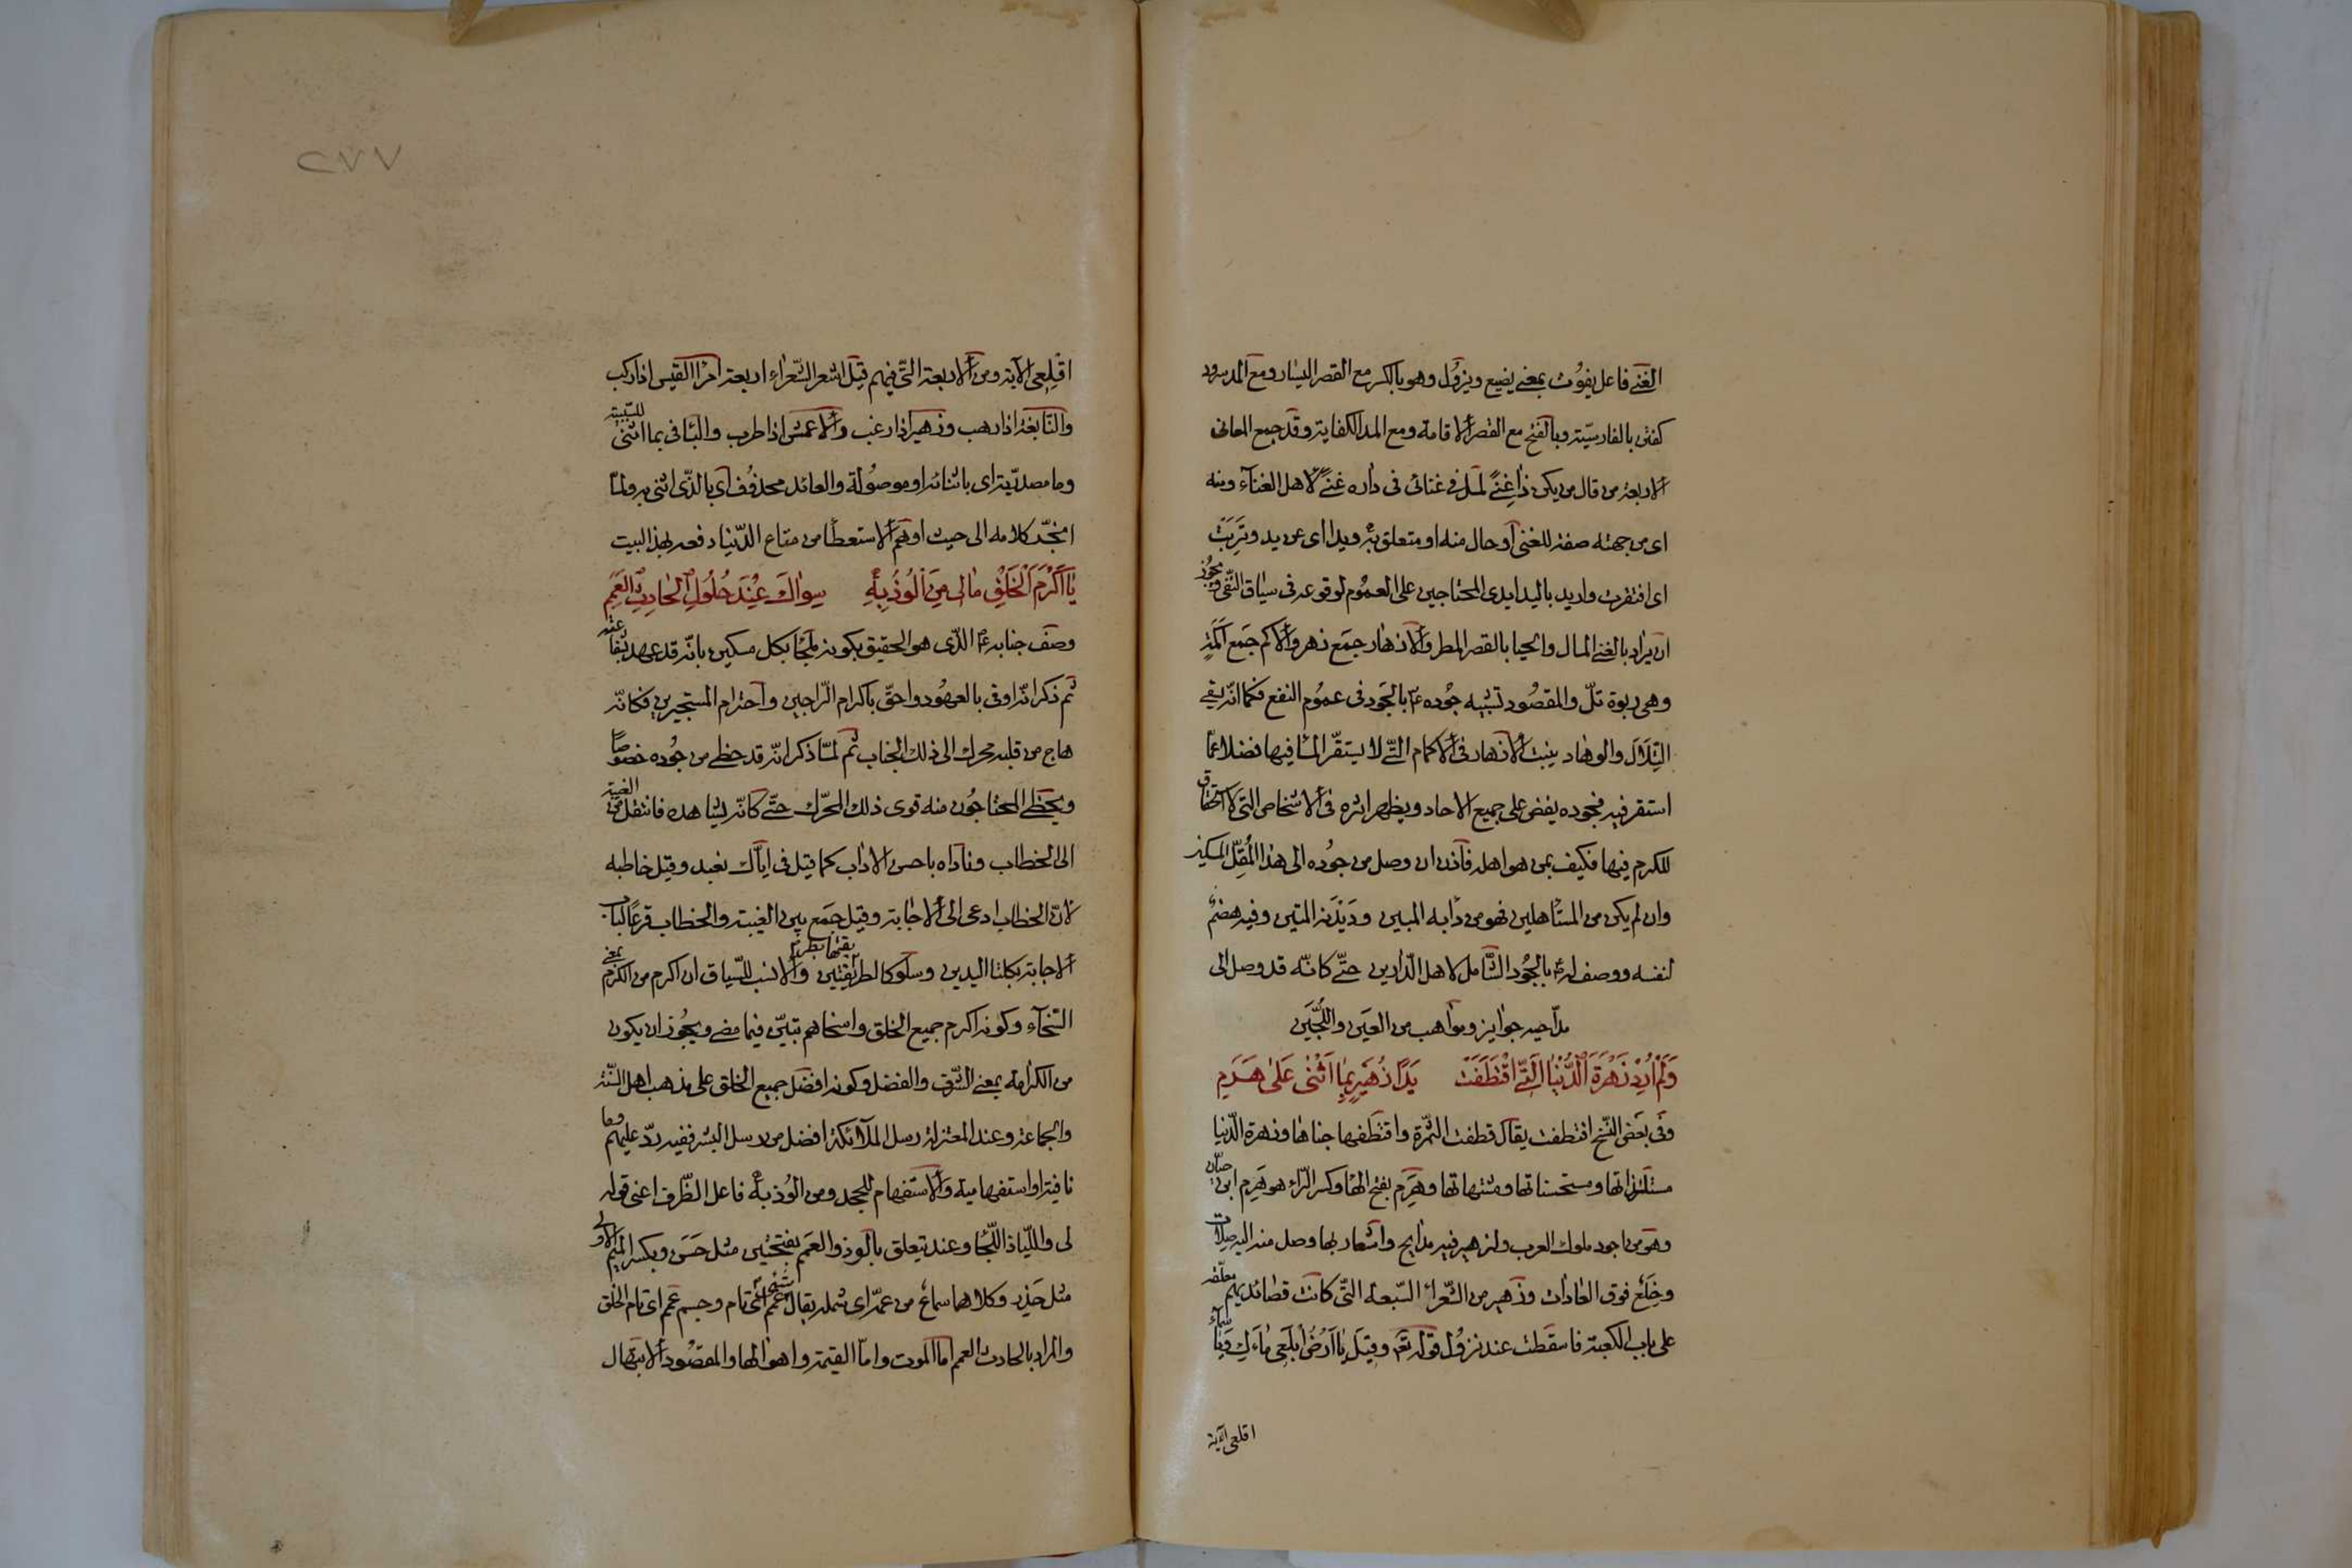 الغنى فاعل يفوت بمعنى يضيع ويزول وهو بالكسر مع القصر اليسار ومع المد سرود
كفتن بالفارسيّة وبالفتح مع القصر الاقامة ومع المد الكفاية وقد جمع المعانى
الاربعة من قال من يكن ذا غنىً لمل فى غنائى فى داره غنىً لاهل الغناء ومنه
اى من جهته صفة للغنى او حال منه او متعلق به ويدا اى عن يد وتَرِبَتْ
اى افتقرت واريد باليد ايدى المحتاجين على العموم لوقوعه فى سياق النّفى ويجوز
ان يراد بالغنى المال والحيا بالقصر المطر والازهار جمع زهر والاكم جمع اكمة
وهى ربوة تلّ والمقصود تشبيه جوده ع م بالجود فى عموم النفع فكما انّه يقى
التِّلَالَ والوهاد ينبت الازهار فى الاكمام الّتى لا يستقرّ الماء فيها فضلا عمّا
استقر فيه فجوده يفض على جميع الاحاد ويظهر اثره فى الاشخاص التى لا استحقاق
للكرم فيها فكيف بمن هو اهله فاذن ان وصل من جوده الى هذا المُقِلّ المسكين
وان لم يكن من المستاهلين فهو من دأبه المبين وديْدَنه المتين وفيه هضمٌ
لنفسه ووصف له ع م بالجُود الشّامل لاهل الدّارين حتّى كانّه قد وصل الى
مدّاحيه جوايز ومواهب من العين واللُّجَين
وَلَمْ اُرِدْ زَهْرَةَ الدُّنْيَا الَّتِى اقْتَطَفَتْ يَدَا زُهَيْرٍ بِمَا اَثْنٰى عَلٰى هَرِمِ
وفى بعض النّسخ اقتطفت يقال قطفت الثمرة واقتطفها جناها وزهرة الدّنيا
مستلذاتها ومستحسناتها ومشتهاتها وهَرِم بفتح الهاء وكسر الرّاء هو هَرِم ابن حيّان
وهو من اجود ملوك العرب ولزهير فيه مدايح واشعار بها وصل منه اليه صِلات
وخِلَع فوق العادات وزهير من الشّعراء السّبعة التّى كانت قصائدهم معلّقة
على باب الكعبة فاسقطت عند نزول قوله تع وقيل يٰا اَرْضُ ابْلَعِى مٰاءَكِ وَيٰا سَمٰاءُ
اقلعى الآية
٢٧٧
اقْلِعِى الآية ومن الاربعة الّتى فيهم قيل اشعر الشّعراء اربعة امرا القيس اذا ركب
والنّابغة اذا رهب وزهير اذا رغب والاعمش اذا طرب والباء فى بما اثنى للسّببيّة
وما مصدريّة اى باثنائه او موصولة والعائد محذوف اى بالذّى اثنى به ولمّا
انجرّ كلامه الى حيث اوهم الاستعطاء من متاع الدّنيا دفعه بهذا البيت
يٰا اَكْرَمَ الْخَلْقِ مٰالِى مَنْ اَلُوذُ بِهٖ سِوٰاكَ عِنْدَ حُلُولِ الْحٰادِثِ الْعَمِمِ
وصف جنابه ع م الذّى هو الحقيق بكونه ملجأ بكل مسكين بانّه قد عهد عنه
ثم ذكر انّه اوفى بالعهود واحقّ باكرام الرّاجين واحترام المستجيرين فكانّه
هاج من قلبه محرك الى ذلك الجناب ثم لمّا ذكر انّه قد حظى من جُوده خصوصًا
ويحظى المحتاجُون منه قوى ذلك المحرّك حتّى كانّه يشاهده فانتقل من الغيبة
الى الخطاب وناداه باحسن الاداب كما قيل فى ايّاك نعبد وقيل خاطبه
لانّ الخطاب ادعى الى الاجابة وقيل جمع بين الغيبة والخطاب قرعًا لباب
الاجابة بكلتا اليدين وسلوكا لطريقتين والانسب للسّياق ان اكرم من الكرم بمعنى
السّخاء وكونه اكرم جميع الخلق واسخاهم تبيّن فيما مضى ويجوز ان يكون
من الكرامة بمعنى الشّرف والفضل وكونه افضل جميع الخلق على مذهب اهل السّنة
والجماعة وعند المعتزلة رسل الملائكة افضل من رسل البشر ففيه ردّ عليهم وما
نافية او استفهامية والاستفهام للجحد ومن الوذ به فاعل الظّرف اعنى قوله
لى واللّياذ اللّجاء وعند يتعلق بالوذ والعَمم بفتحتين مثل حَسَن وبكسر الميم الاولى
مثل حَذِر وكلاهما سماعٌ من عمّ اى شمله يقال شئ عمم اى تام وجسم عمم اى تام الخلق
والمراد بالحادث العمم امّا الموت وامّا القيمة واهوالها والمقصُود الابتهال